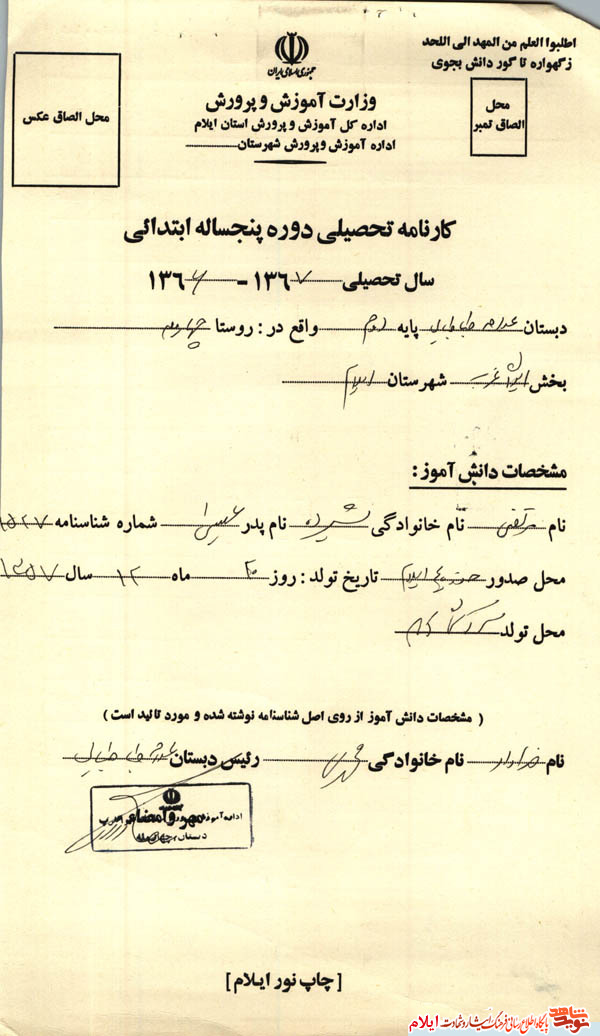 اطلبوا العلم من المهد الی اللحد
زگهواره تا گور دانش بجوی
جمهوری اسلامی ایران
وزارت آموزش و پرورش
اداره کل آموزش و پرورش استان ایلام
اداره آموزش و پرورش شهرستان
محل الصاق تمبر
محل الصاق عکس
کارنامه تحصیلی دوره پنجساله ابتدائی
سال تحصیلی ۱۳۶۷ - ۱۳۶۶
دبستان علامه طباطبایی پایه دوم واقع در : روستا چهارمله
بخش ایوان غرب شهرستان ایلام
مشخصات دانش آموز :
نام مرتضی نام خانوادگی نام پدر عیسی شماره شناسنامه ۱۵۲۷
محل صدور ایلام تاریخ تولد : روز ماه ۱۲ سال ۱۳۵۷
محل تولد
( مشخصات دانش آموز از روی اصل شناسنامه نوشته شده و مورد تائید است )
نام خداداد نام خانوادگی رئیس دبستان علامه طباطبایی
مهر و امضاء
[ چاپ نور ایلام ]
نوید شاهد پایگاه اطلاع رسانی فرهنگ ایثار و شهادت ایلام